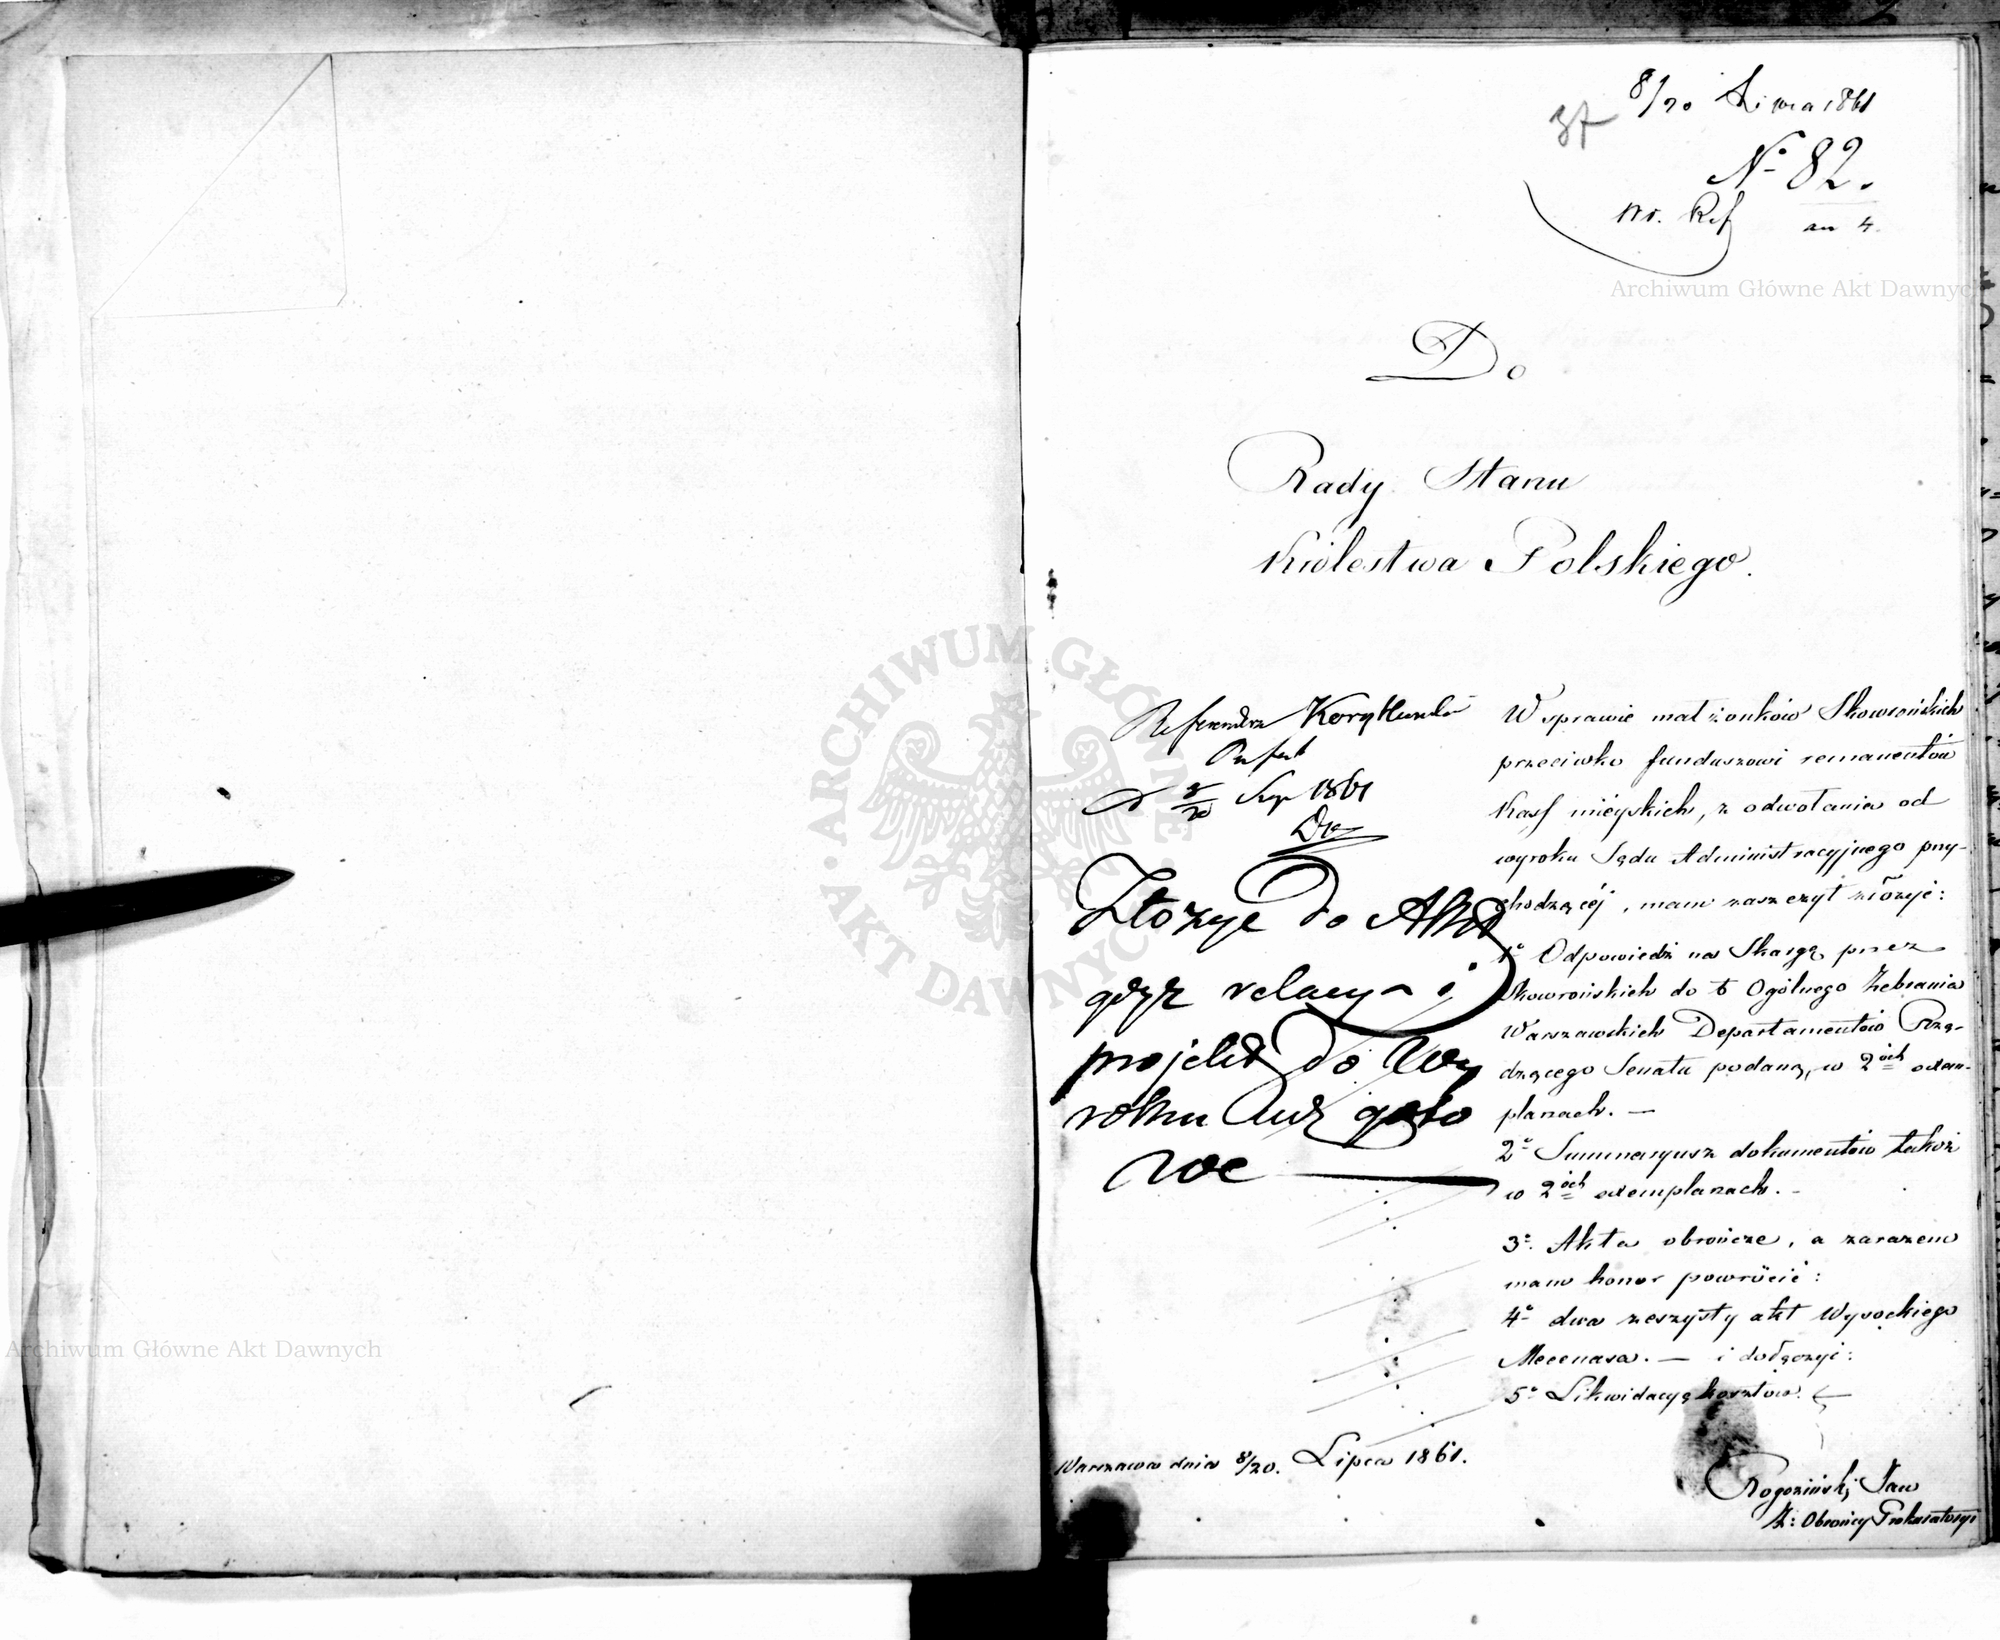 8/20 1861
37
No 82.
Nr. Ref an 4.
Archiwum Główne Akt Dawnych
Do
Rady Stanu
Królestwa Polskiego.
Referendarz
8/20 1861
Złożyć do Akt
gdyż relacya i
projekt do Wy
roku już goto
we
W sprawie małżonków Skowrońskich
przeciwko funduszowi remanentów
Kass mieyskich, z odwołania od
wyroku Sądu Administracyjnego przy-
chodzącéj, mam zaszczyt złożyć:
1o Odpowiedź na Skargę przez
Skowrońskich do Ogólnego Zebrania
Warszawskich Departamentów Rzą-
dzącego Senatu podaną, w 2ch exem-
plarzach. —
2o Summaryusz dokumentów także
w 2ch exemplarzach. -
3o Akta obrończe, a zarazem
mam honor powrócić:
4o dwa zeszyty akt Wysockiego
Mecenasa. — i dołączyć:
5o Likwidacyę kosztów. —
Warszawa dnia 8/20. Lipca 1861.
Rogoziński Jan
Z: Obrońcy Prokuratoryi
ARCHIWUM GŁÓWNE AKT DAWNYCH
Archiwum Główne Akt Dawnych